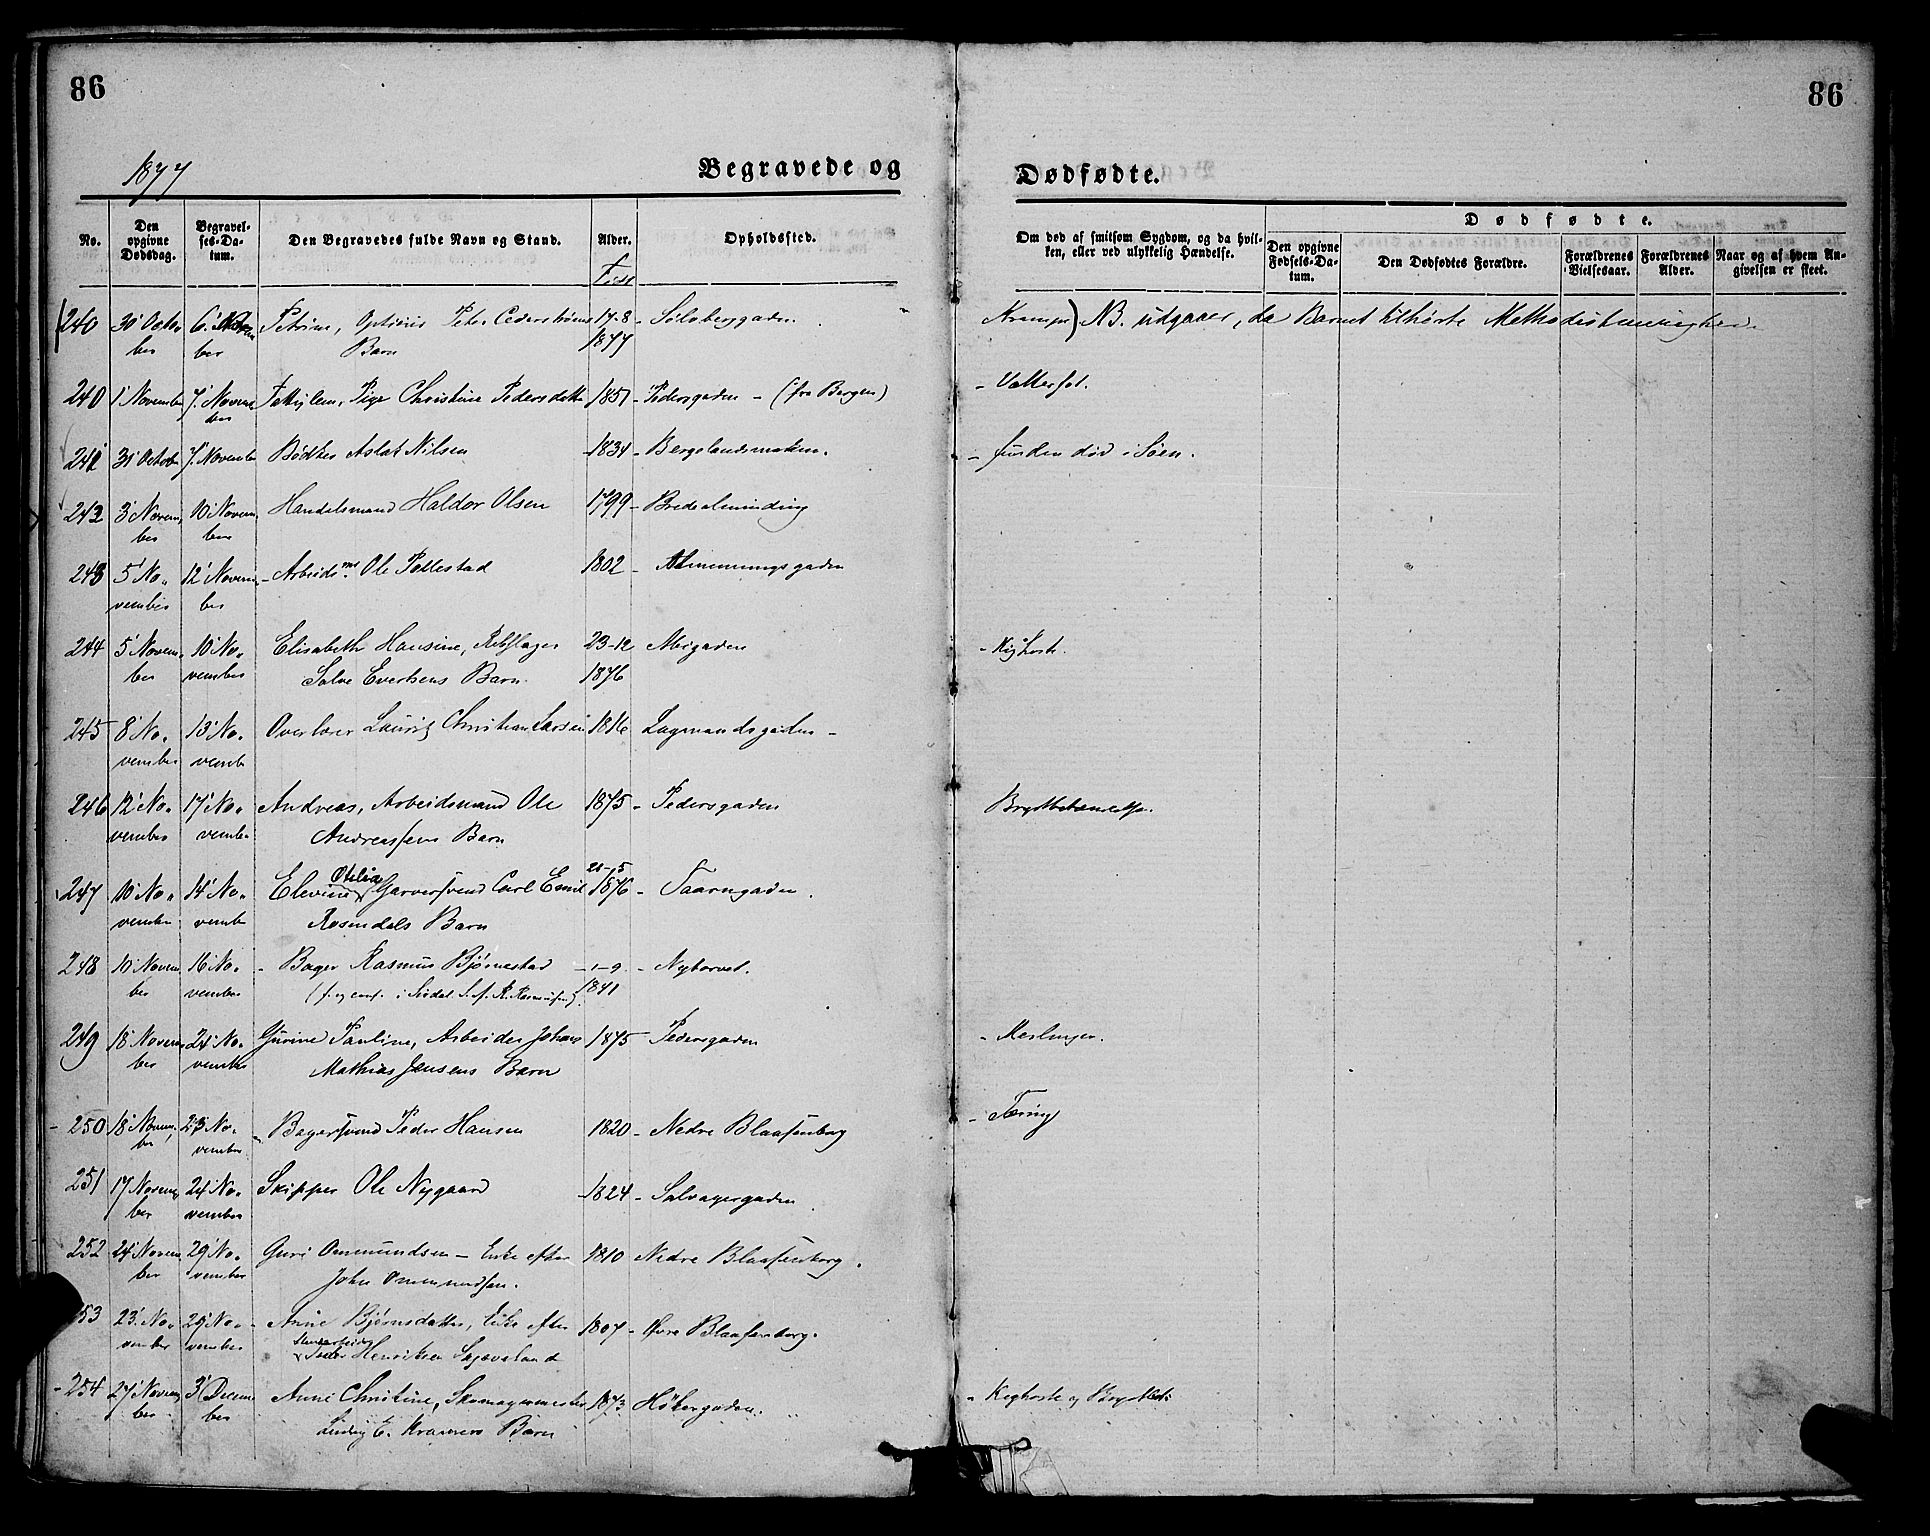 86
86
1877
Begravede og
Dødfødte.
No.
Den opgivne Dødsdag.
Begravelses-Datum.
Den Begravedes fulde Navn og Stand.
Alder.
Født
Opholdssted.
Om død af smitsom Sygdom, og da hvilken, eller ved ulykkelig Hændelse.
Dødfødte.
Den opgivne Fødsels-Datum.
Den Dødfødtes Forældre.
Forældrenes Vielsesaar.
Forældrenes Alder.
Naar og af hvem Angivelsen er skeet.
240 30' October 6' November Petrine, Peter Cederstrøms 17-8 - Sølvberggaden
Barn 1877
Krampe) NB. udgaaer, da Barnet tilhørte
240 1' November 7' November Fattiglem, Pige Christine Pedersdatter 1851 - Pedersgaden - (fra Bergen) - Vattersot.
241 31' October 7' November Bødker Aslak Nilsen 1834 - Bergelandsmarken. - funden død i Søen.
242 3' November 10' November Handelsmand Haldor Olsen 1799 - Bredealminding
243 5' November 12' November - Arbeidsm. Ole Tellestad 1802 -
244 5' November 10' November Elisabeth Hansine, Rebslager 23-12 - Kighoste.
Salve Evertsens Barn. 1876
245 8' November 13' November Overlærer Lauritz Christian Larsen 1816 Lagmandsgaden -
246 12' November 17' November Andreas, Arbeidsmand Ole 1875 - Pedersgaden
Andreassens Barn
247 10' November 14' November Elevine Otilia, Garversvend Carl Emil 21-5 1876 - Taarngaden.
Rosendals Barn
248 10' November 16' November - Bager Rasmus Bjørnestad 1-9 - Nytorvet.
1841
249 18' November 24' November Gurine Pauline, Arbeider Johan 1875 - Pedersgaden - Meslinger.
Mathias Jensens Barn
- 250 18' November 23' November - Bagersvend Peder Hansen 1820 - Nedre Blaasenborg - Tæring
251 17' November 24' November Skipper Ole Nygaard 1824 - Salvagergaden
252 24' November 29' November Guri Ommundsen - Enke efter 1810 Nedre Blaasenborg.
John Ommundsen.
53 23' November 29' November - Anne Bjørnsdatter, Enke efter 1807 - Øvre Blaasenborg.
Stenarbeider Peder Henriksen Skjæveland
- 254 27' November 3' December Anne Christine, Skomagermester 1873 Høkergaden. - Kighoste og
E. Barn